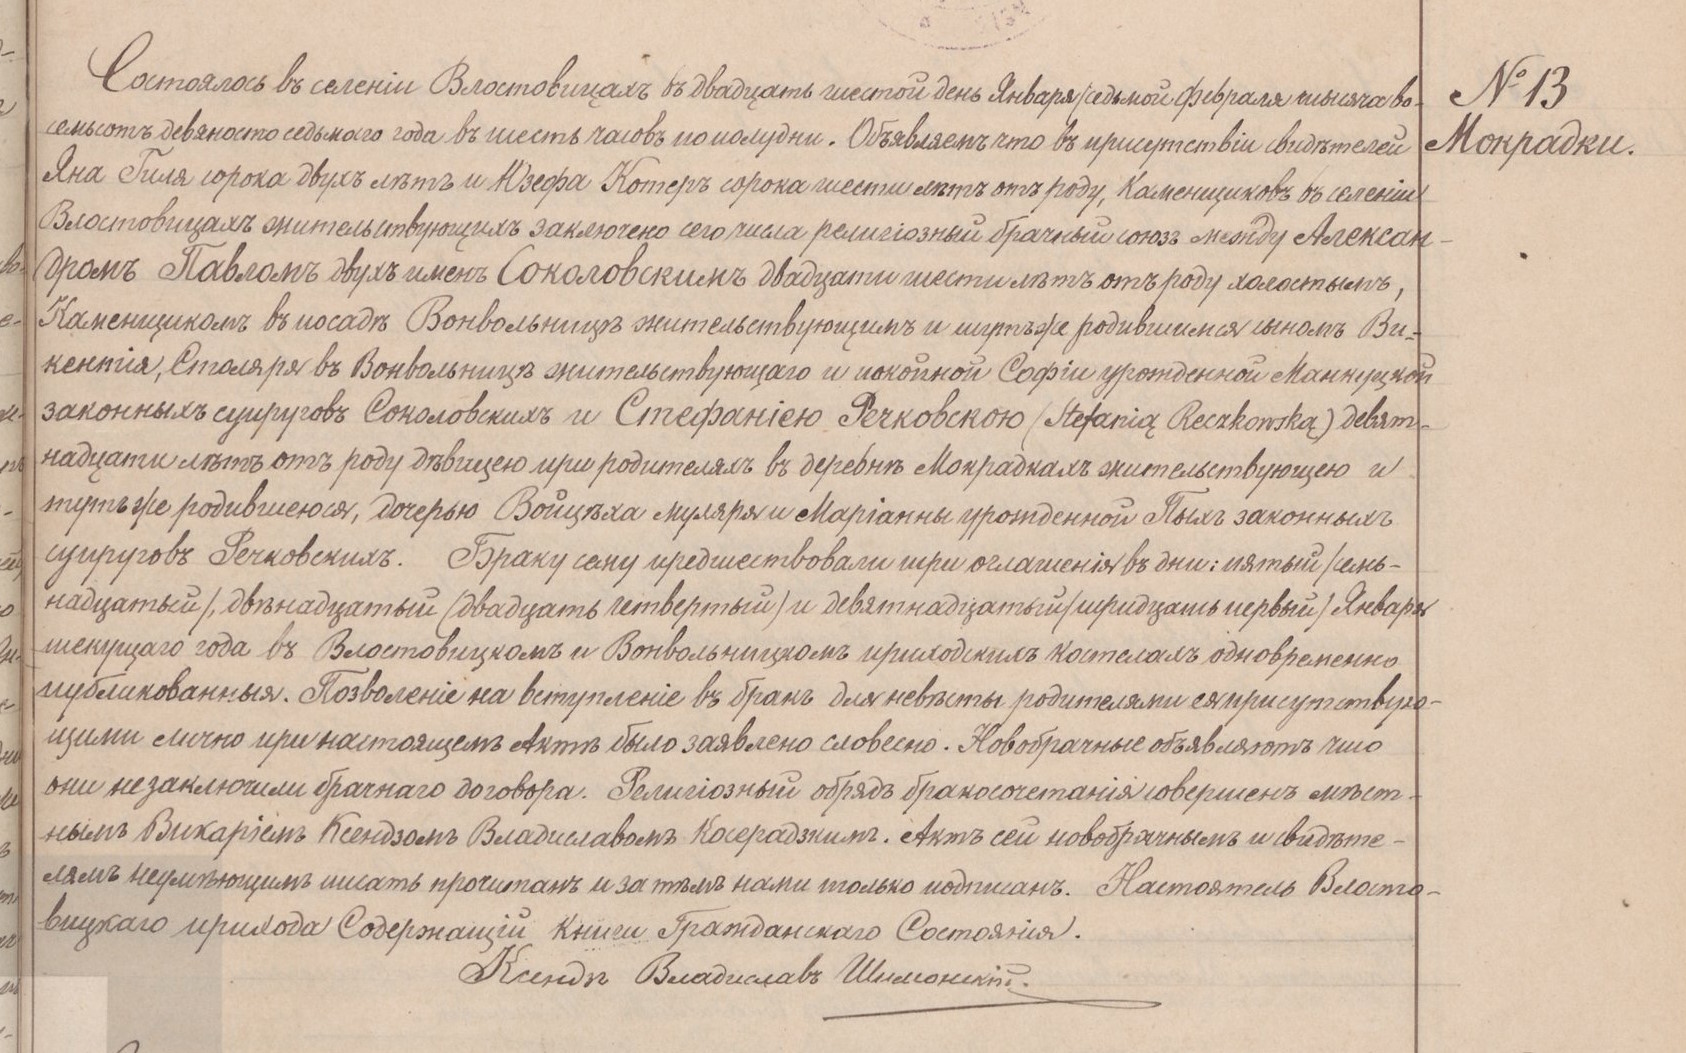 Состоялось въ селеніи Влостовицахъ въ двадцать шестой день Января /седьмой Февраля тысяча во-
семьсотъ девяносто седьмаго года въ шесть часовъ пополудни. Объявляемъ что въ присутствіи свидѣтелей
Яна Гиля сорока двухъ лѣтъ и Юзефа Котеръ сорока шести лѣтъ отъ роду, Каменщиковъ въ селеніи
Влостовицахъ жительствующихъ заключено сего числа религіозный брачный союзъ между Алексан-
дромъ Павломъ двухъ именъ Соколовскимъ двадцати шести лѣтъ отъ роду холостымъ,
Каменщикомъ въ посадѣ Вонвольницѣ жительствующимъ и тутъ же родившимся сыномъ Ви-
кентія, Столяря въ Вонвольницѣ жительствующаго и покойной Софіи урожденной
законныхъ супруговъ Соколовскихъ и Стефаніею Речковскою (Stefanią Reczkowską) девят-
надцати лѣтъ отъ роду дѣвицею при родителяхъ въ деревнѣ Мокрадкахъ жительствующею и
тутъ же родившеюся, дочерью Войцѣха муляря и Маріанны урожденной Пыхъ законныхъ
супруговъ Речковскихъ. Браку сему предшествовали три оглашенія въ дни: пятый /семь-
надцатый/, двѣнадцатый /двадцать четвертый/ и девятнадцатый /тридцать первый/ Января
текущаго года въ Влостовицкомъ и Вонвольницкомъ приходскихъ костелахъ одновременно
публикованныя. Позволеніе на вступленіе въ бракъ для невѣсты родителями ея присутствую-
щими лично при настоящемъ Актѣ было заявлено словесно. Новобрачные объявляютъ что
они незаключили брачнаго договора. Религіозный обрядъ бракосочетанія совершенъ мѣст-
нымъ Викаріемъ Ксендзомъ Владиславомъ Косерадзкимъ. Актъ сей новобрачнымъ и свидѣте-
лямъ неумѣющимъ писать прочитанъ и за тѣмъ нами только подписанъ. Настоятель Влосто-
вицкаго прихода Содержащій Книги Гражданскаго Состоянія.
Ксендзъ Владиславъ Шимонскій.
№ 13
Мокрадки.